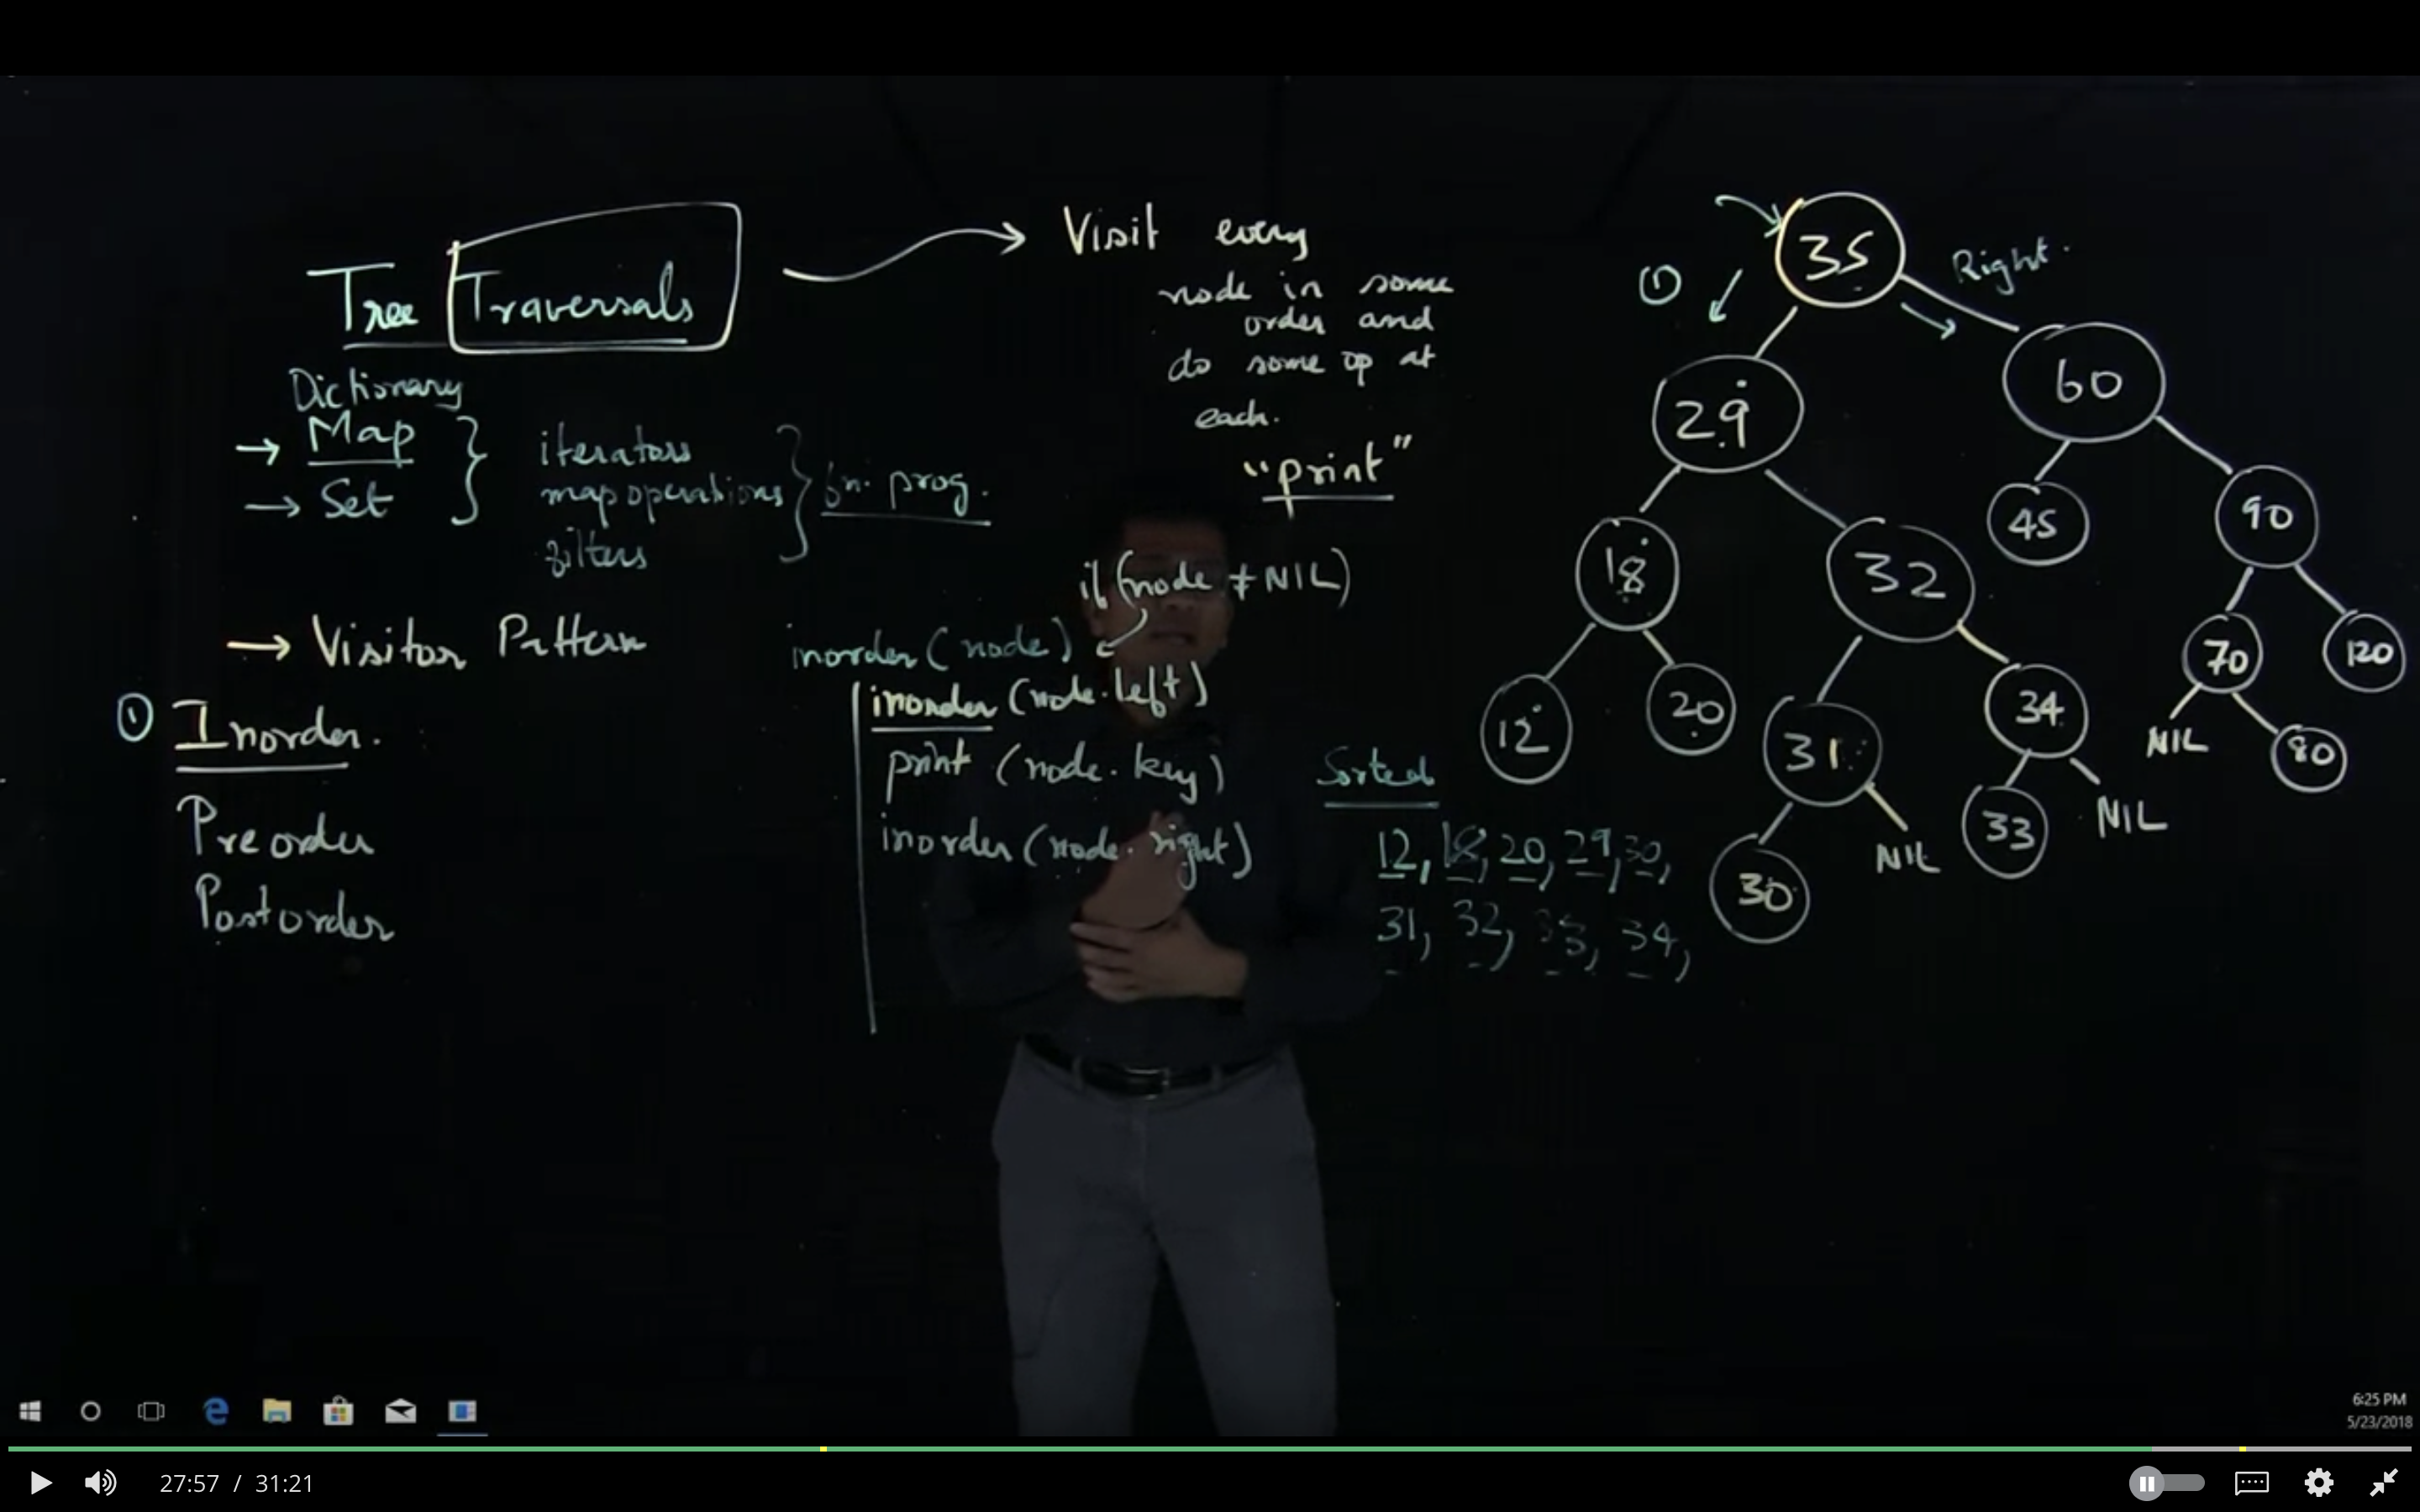 Tree Traversals
Visit every
node in some
order and
do some op at
each.
"print"
Dictionary
→ Map
→ Set
iterators
map operations
filters
fn. prog.
→ Visitor Pattern
① Inorder.
Preorder
Postorder
if (node ≠ NIL)
inorder (node)
inorder (node.left)
print (node.key)
inorder (node.right)
Sorted
12, 18, 20, 29, 30,
31, 32, 33, 34,
①
Right.
35
29
60
18
32
45
90
12
20
31
34
70
120
30
NIL
33
NIL
NIL
80
6:25 PM
5/23/2018
27:57 / 31:21